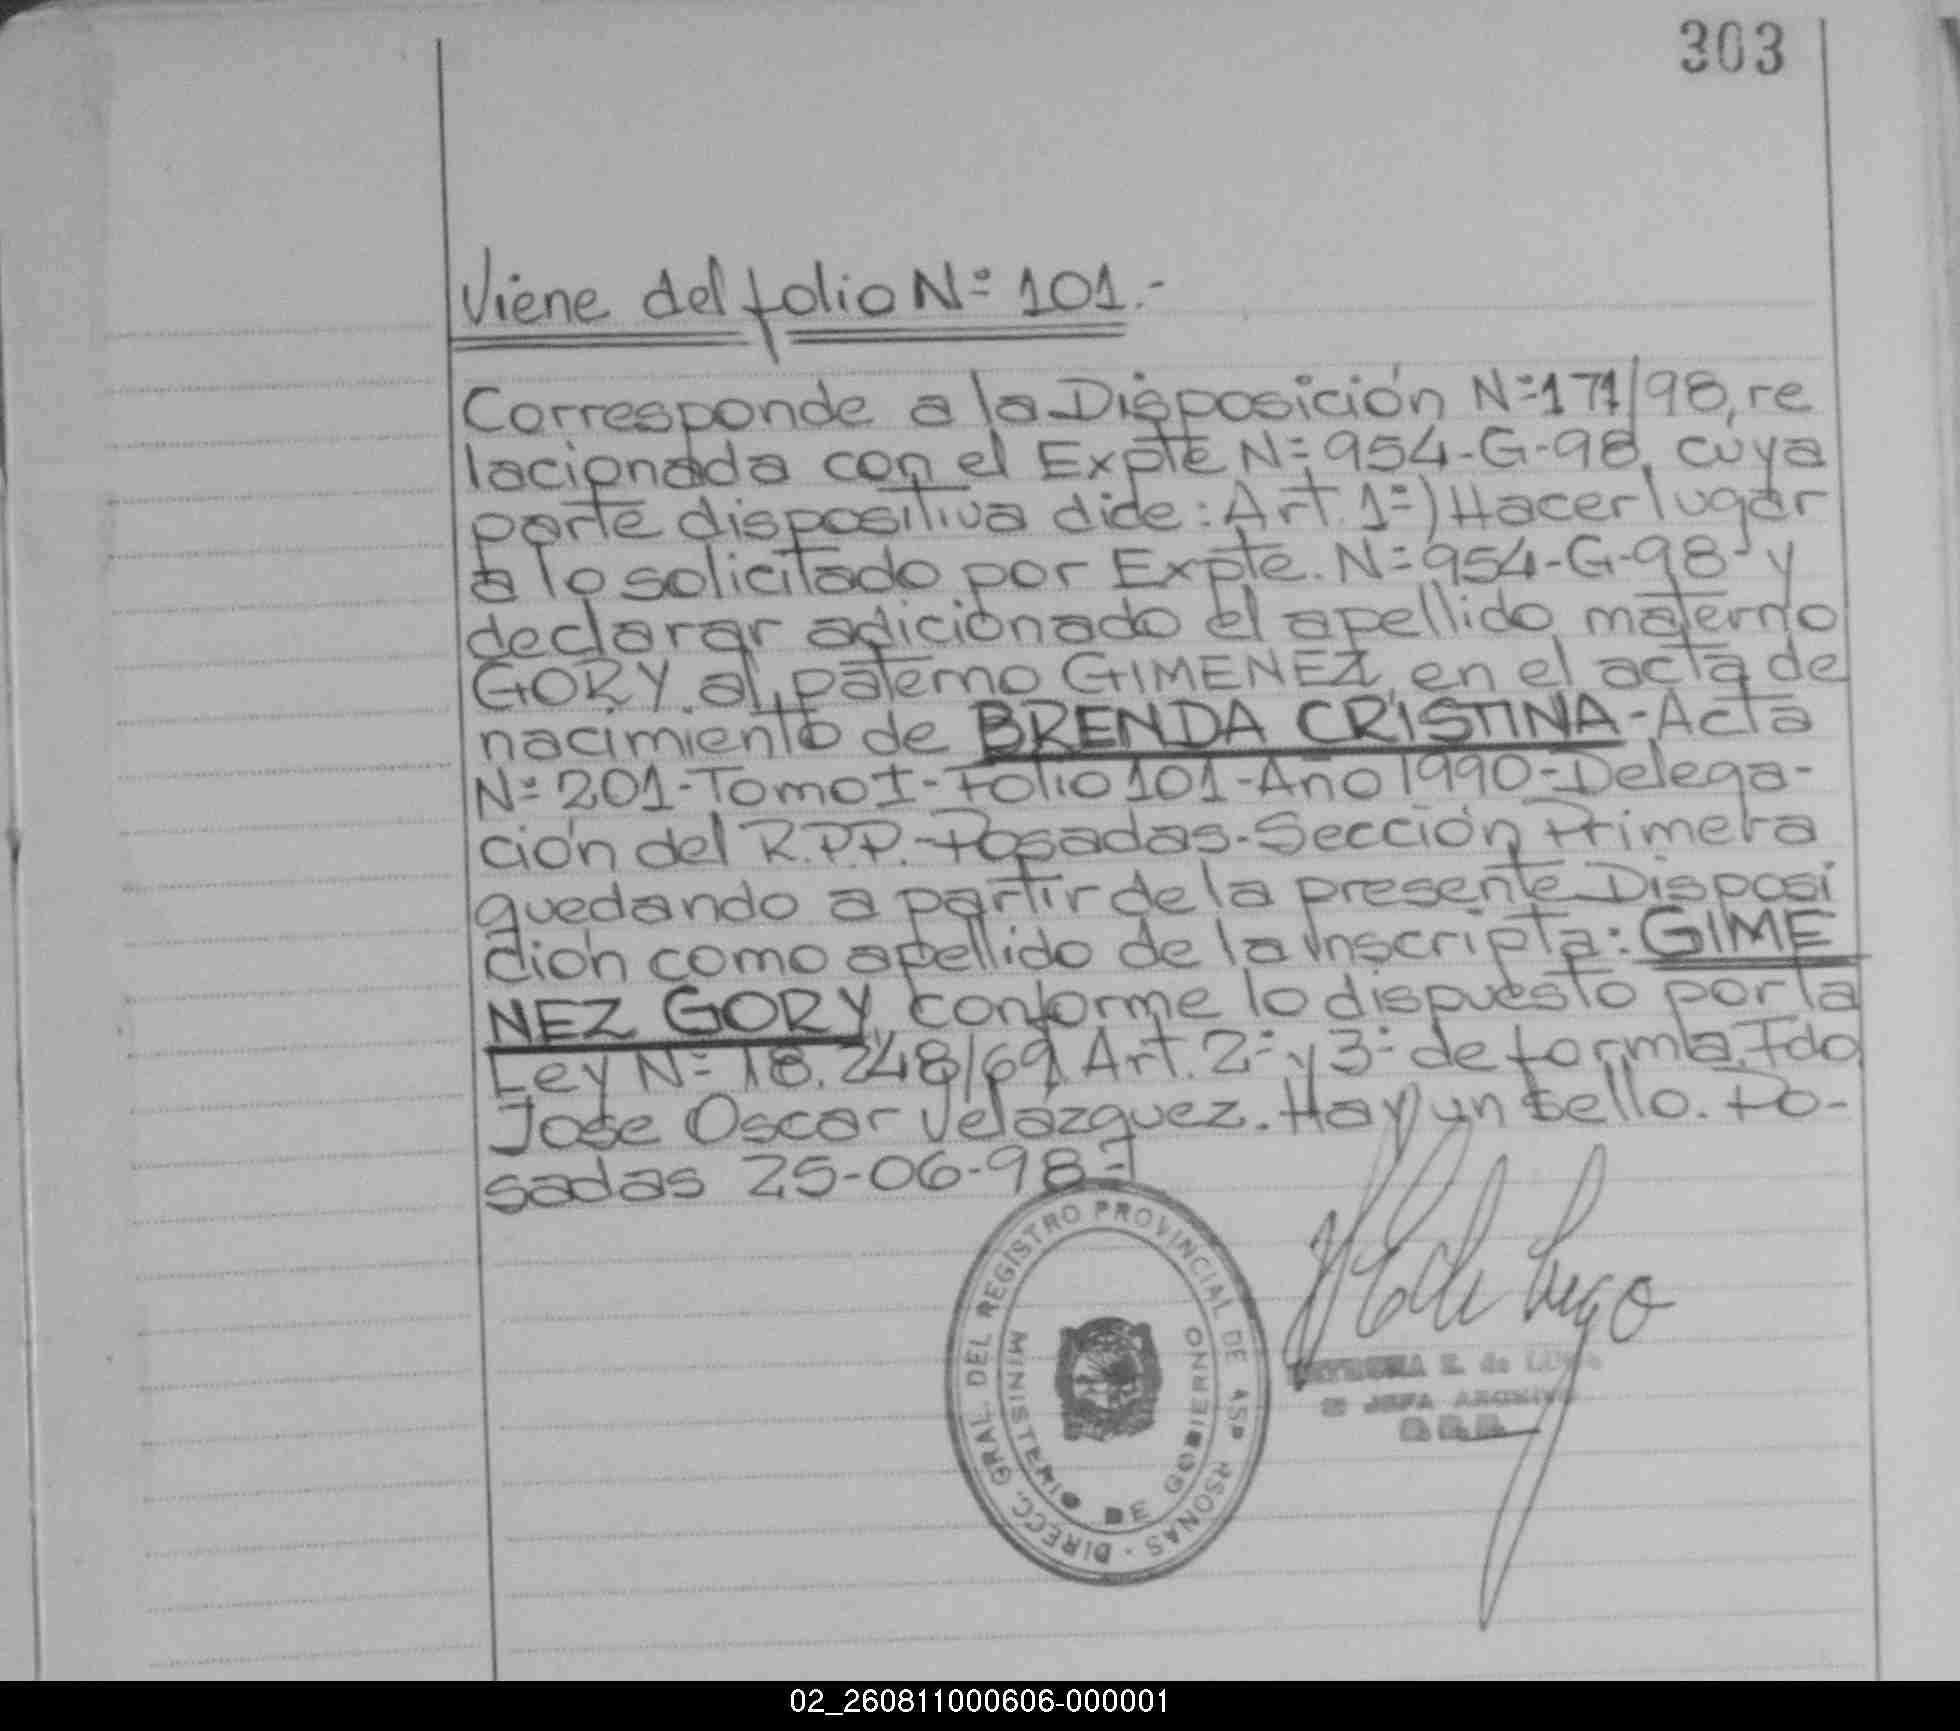 303
Viene del folio Nº 101.-
Corresponde a la Disposición Nº 171/98, re
lacionada con el Expte Nº 954-G-98, cuya
parte dispositiva dice: Art. 1º) Hacer lugar
a lo solicitado por Expte. Nº 954-G-98 y
declarar adicionado el apellido materno
GORY al paterno GIMENEZ en el acta de
nacimiento de BRENDA CRISTINA - Acta
Nº 201 - Tomo I - Folio 101 - Año 1990 - Delega-
ción del R.P.P. - Posadas - Sección Primera
quedando a partir de la presente Disposi
ción como apellido de la inscripta: GIME
NEZ GORY, conforme lo dispuesto por la
Ley Nº 18.248/69 Art. 2º y 3º de forma. Fdo
Jose Oscar Velazquez. Hay un sello. Po-
sadas 25-06-98.-
DIRECC. GRAL. DEL REGISTRO PROVINCIAL DE ASP RSONAS -
MINISTERIO DE GOBIERNO
JEFA ARCHIVO
02_260811000606-000001